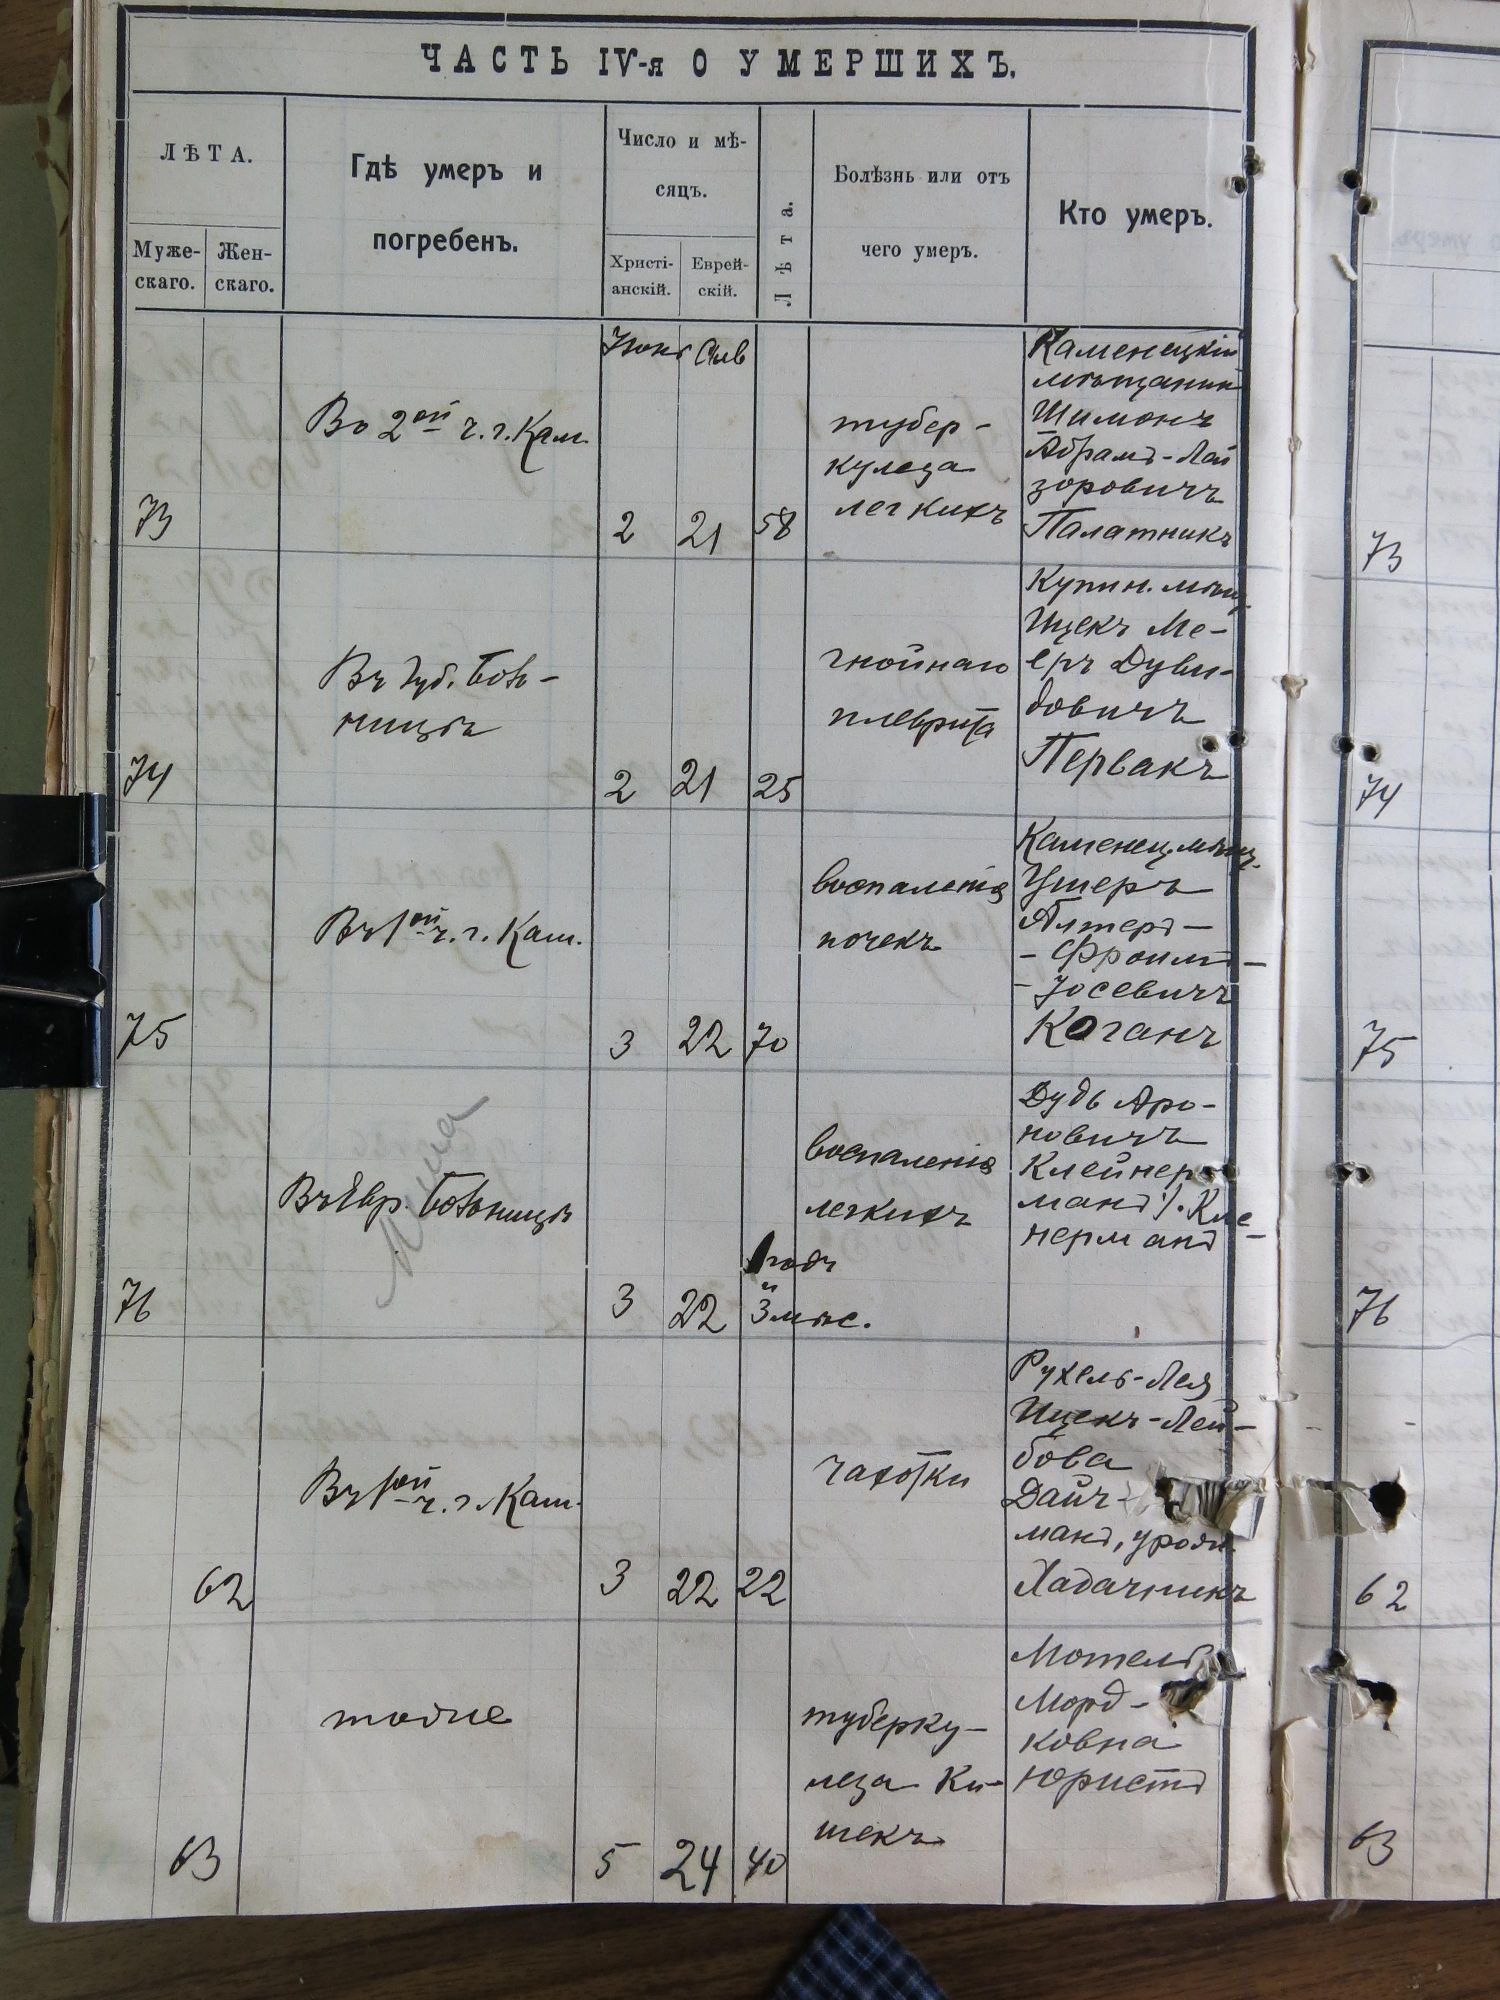 ЧАСТЬ IV-я О УМЕРШИХЪ.
ЛѢТА.
Муже-
скаго.
Жен-
скаго.
Гдѣ умеръ и
погребенъ.
Число и мѣ-
сяцъ.
Христі-
анскій.
Еврей-
скій.
Лѣта.
Болѣзнь или отъ
чего умеръ.
Кто умеръ.
Іюнь Сив
73
Во 2ой ч. г. Кам.
2
21
58
тубер-
кулеза
легкихъ
Каменецкій
мѣщанин
Шимонъ
Абрамъ-Лей
зоровичъ
Палатникъ
73
74
Въ Губ. Боль-
ницѣ
2
21
25
гнойнаго
плеврита
Купин. мѣщ.
Ицекъ Ме-
еръ Дуви-
довичъ
Первакъ
74
75
Въ 1ой ч. г. Кам.
3
22
70
воспаленія
почекъ
Каменец. мѣщ.
Ушеръ
Алтеръ-
-Фроимъ-
-Іосевичъ
Коганъ
75
76
Въ Евр. Больницѣ
3
22
1 годъ
и
3 мѣс.
воспаленія
легкихъ
Дудь Аро-
новичъ
Клейнер
манъ
нерманъ
76
62
Въ 1ой ч. г. Кам.
3
22
22
чахотки
Рухель-Лея
Ицекъ-Лей-
бова
Дайч-
манъ, урожд.
Хадачникъ
62
63
тоже
5
24
40
туберку-
леза Ки-
шекъ
Мотель
Морд-
ковна
Юристъ
63